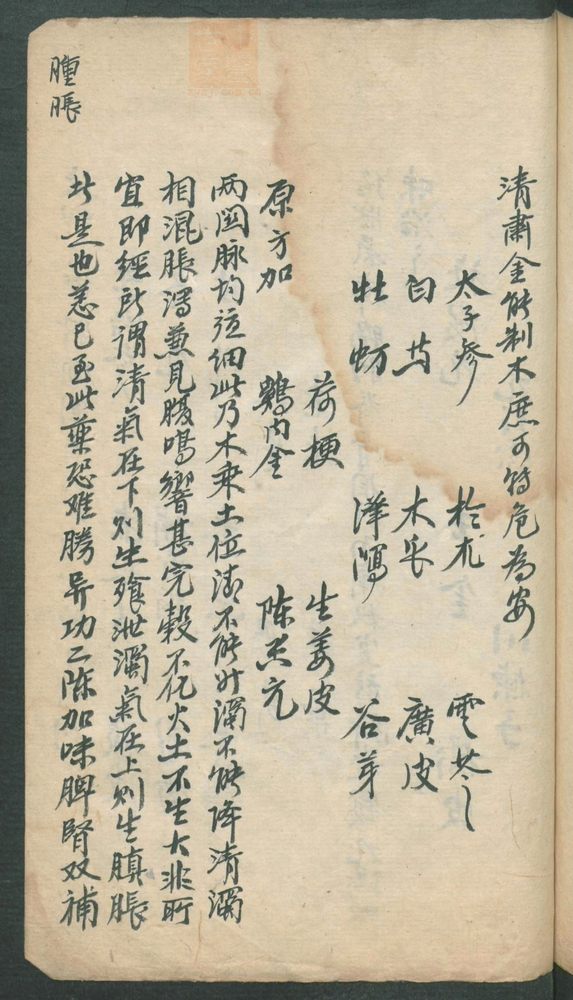 清肅金能制木庶可轉危為安
太子參 於朮 雲苓
白芍 木瓜 廣皮
牡蠣 澤瀉 谷芽
荷梗 生姜皮
原方加 鷄內金 陈香元
两関脉均弦細此乃木乘土位清不能升濁不能降清濁
相混脹瀉兼見腸鳴響甚完穀不化火土不生大非所
宜即經所謂清氣在下则生飧泄濁氣在上则生䐜脹
此是也恙已至此藥恐难勝异功二陈加味脾腎双補
腫脹